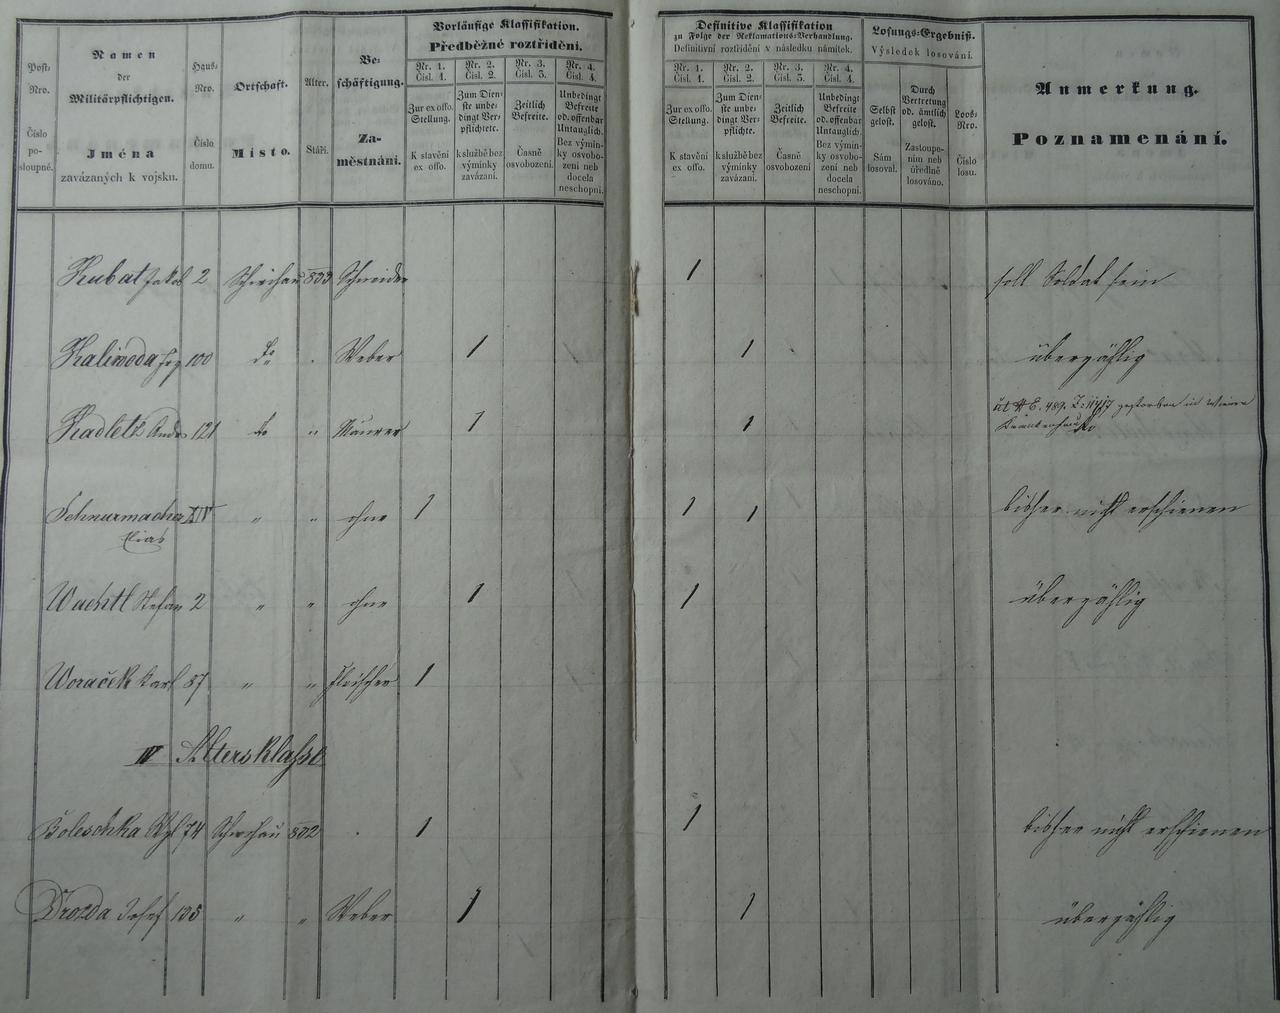 Post-
Nro.
Číslo
po-
sloupné.
Namen
der
Militärpflichtigen.
Jména
zavázaných k vojsku.
Haus-
Nro.
Číslo
domu.
Ortschaft.
Místo.
Alter.
Stáří.
Be-
schäftigung.
Za-
městnání.
Vorläufige Klassifikation.
Předběžné roztřídění.
Nr. 1.
Čísl. 1.
Zur ex offo.
Stellung.
K stavění
ex offo.
Nr. 2.
Čísl. 2.
Zum Dien-
ste unbe-
dingt Ver-
pflichtete.
K službě bez
výminky
zavázaní.
Nr. 3.
Čísl. 3.
Zeitlich
Befreite.
Časně
osvobození.
Nr. 4.
Čísl. 4.
Unbedingt
Befreite
od. offenbar
Untauglich.
Bez výmin-
ky osvobo-
zení neb
docela
neschopní.
Definitive Klassifikation
zu Folge der Reklamations-Verhandlung.
Definitivní roztřídění v následku námitek.
Nr. 1.
Čísl. 1.
Zur ex offo.
Stellung.
K stavění
ex offo.
Nr. 2.
Čísl. 2.
Zum Dien-
ste unbe-
dingt Ver-
pflichte.
K službě bez
výminky
zavázaní.
Nr. 3.
Čísl. 3.
Zeitlich
Befreite.
Časně
osvobození.
Nr. 4.
Čísl. 4.
Unbedingt
Befreite
od. offenbar
Untauglich.
Bez výmin-
ky osvobo-
zení neb
docela
neschopní.
Losungs-Ergebniß.
Výsledek losování.
Selbst
gelost.
Sám
losoval.
Durch
Vertretung
od. ämtlich
gelost.
Zastoupe-
ním neb
úředlně
losováno.
Loos-
Nro.
Číslo
losu.
Anmerkung.
Poznamenání.
Kubat Jakob 2 Schwihau 833 Schneider 1 soll Soldat sein
Kaliwoda 100 do " Weber 1 1 überzählig
Kadletz Andr 121 do " Maurer 1 1 gestorben in Wiener
Schnurmacher XIV " " ohne 1 1 1 bisher nicht erschienen
Elias
Wachtl Stefan 2 " " ohne 1 1 überzählig
Woraček Karl 37 " " Fleischer 1
IV Altersklasse
Boleschka 74 Schwihau 832 " 1 1 bisher nicht erschienen
Drozda Josef 135 " " Weber 1 1 überzählig